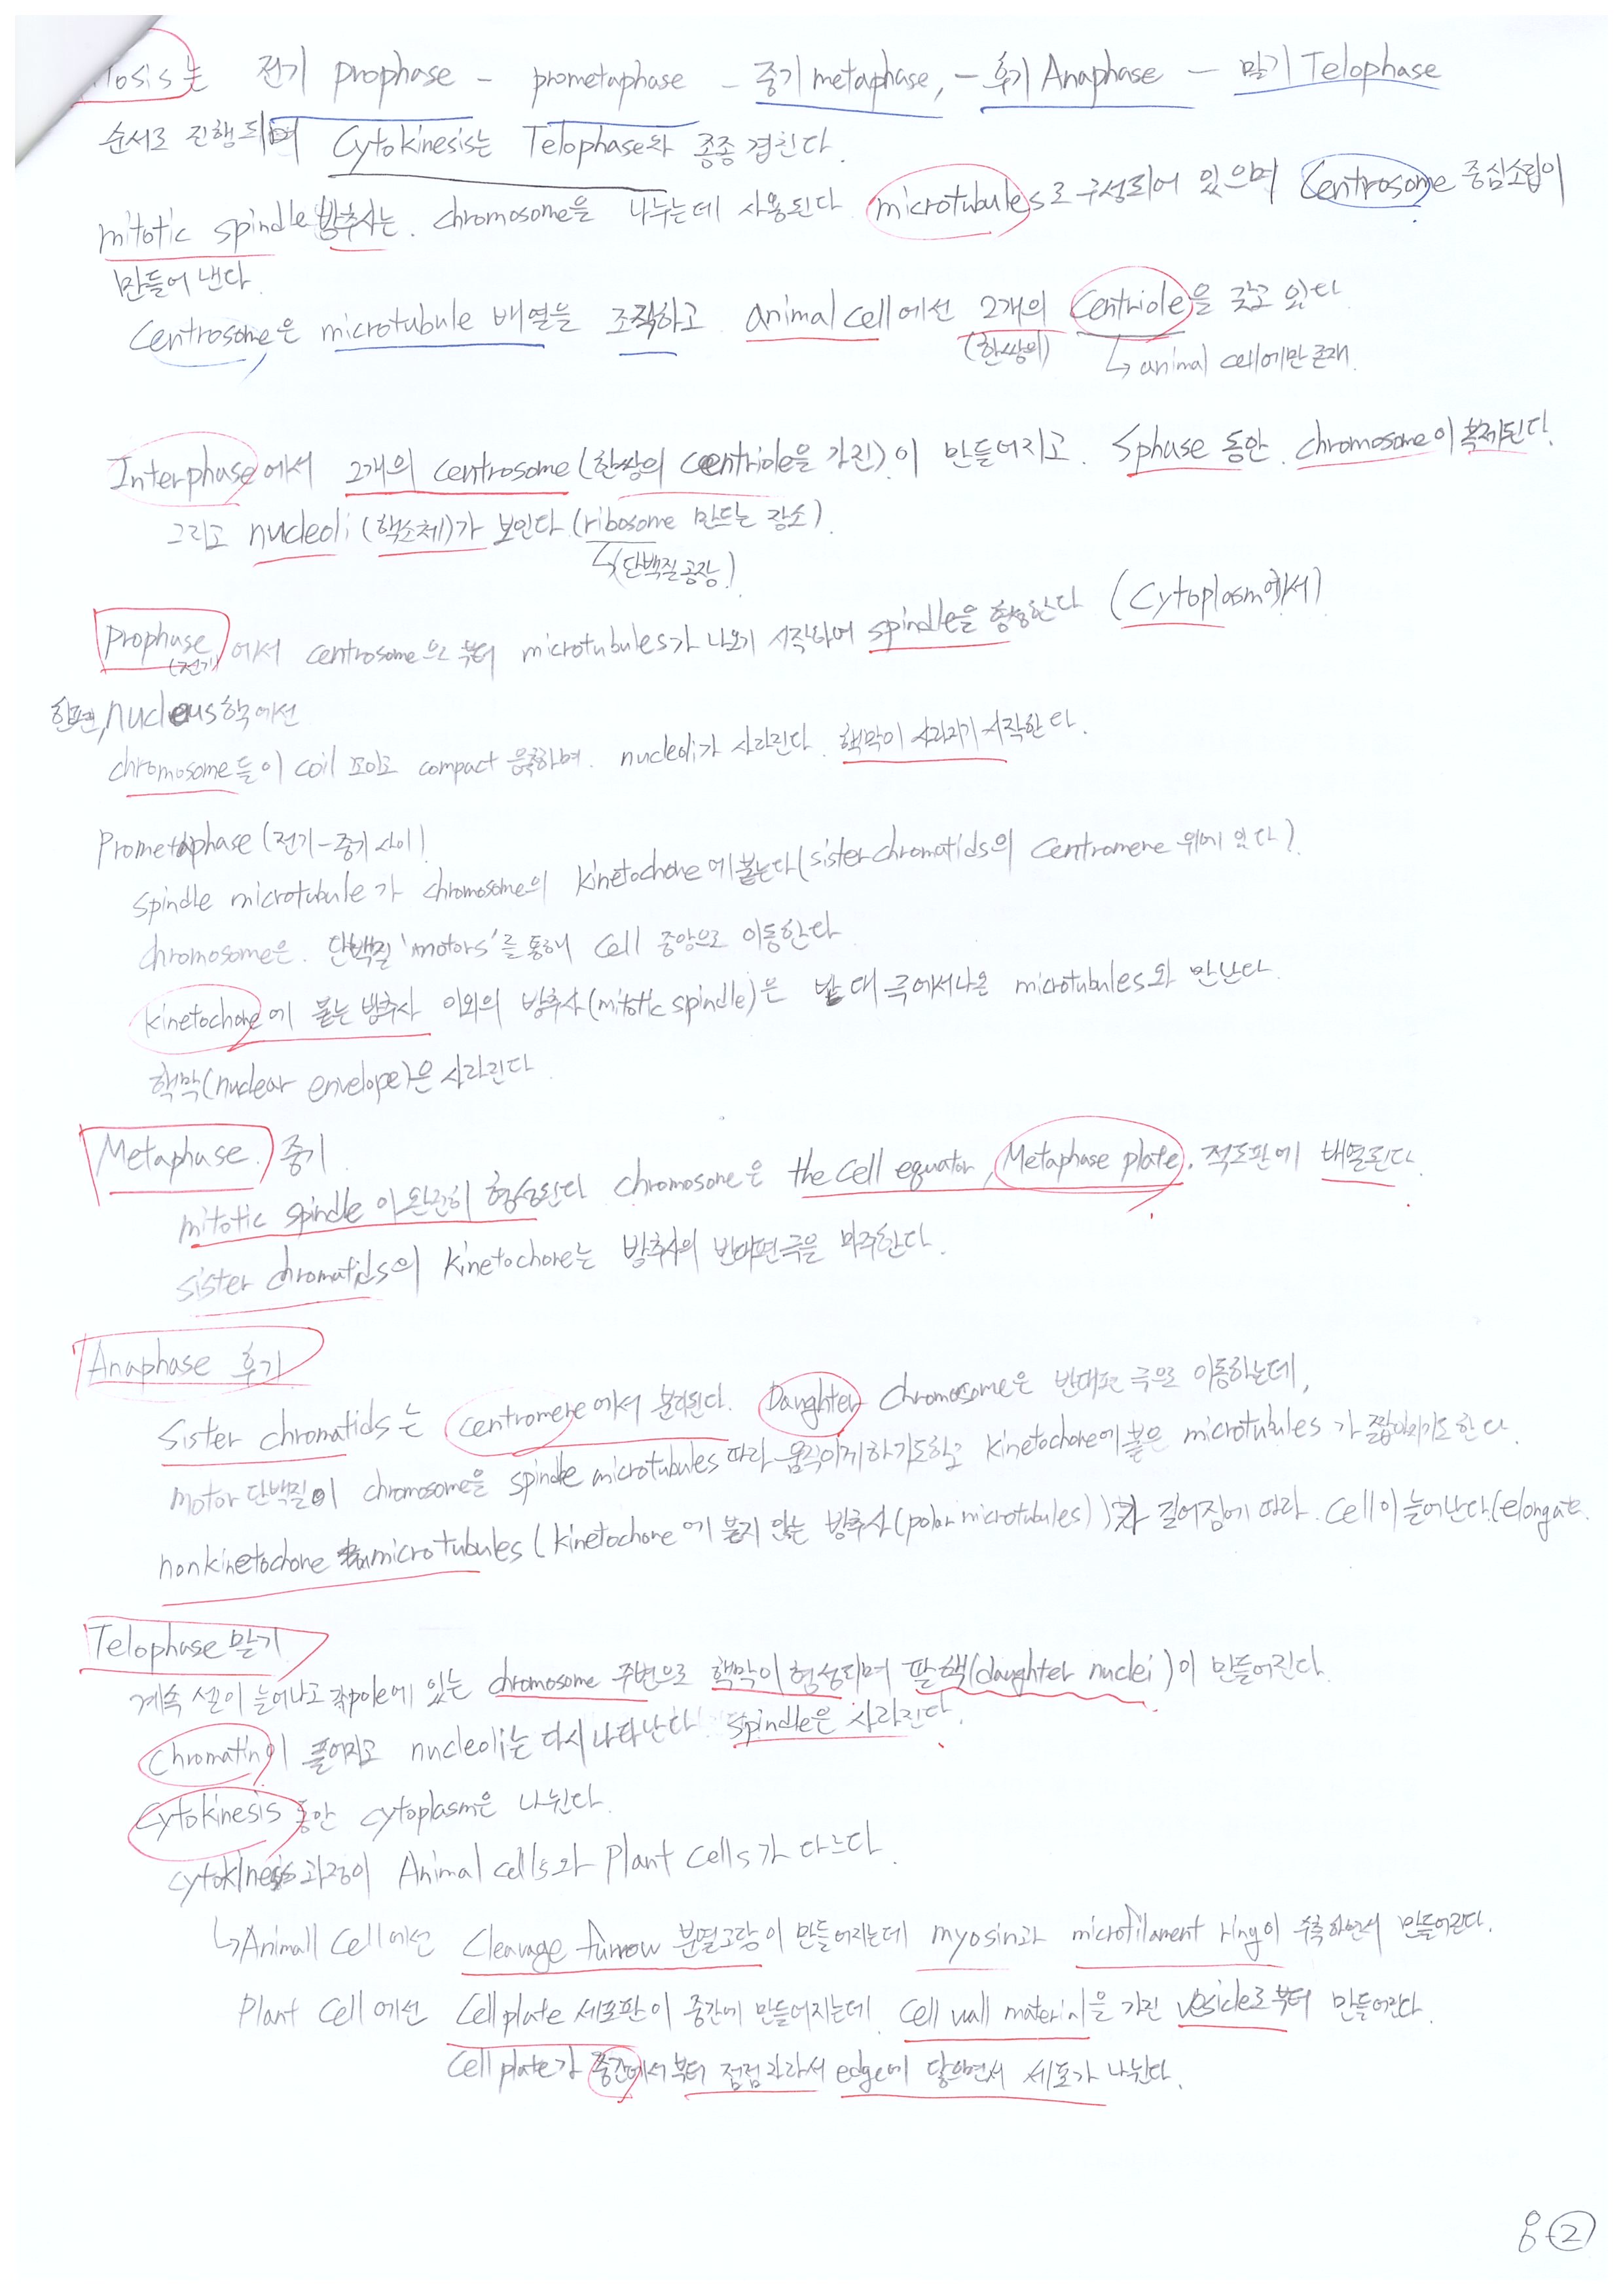 tosis는 전기 prophase - prometaphase - 중기 metaphase, - 후기 Anaphase - 말기 Telophase
순서로 진행되며 Cytokinesis는 Telophase와 종종 겹친다.
mitotic spindle 방추사는. chromosome을 나누는데 사용된다. microtubules로 구성되어 있으며 Centrosome 중심소립이
만들어 낸다.
Centrosome은 microtubule 배열을 조작하고. animal cell에선 2개의 Centriole을 갖고 있다.
(한쌍의) ↳ animal cell에만 존재.
Interphase에서 2개의 centrosome (한쌍의 centriole을 가진)이 만들어지고. S phase 동안. chromosome이 복제된다.
그리고 nucleoli (핵소체)가 보인다 (ribosome 만드는 장소).
↳(단백질 공장)
prophase에서 centrosome으로부터 microtubules가 나오기 시작하여 spindle을 형성한다 (Cytoplasm에서)
(전기)
한편, nucleus 핵에선
chromosome들이 coil 꼬이고 compact 응축하며. nucleoli가 사라진다. 핵막이 사라지기 시작한다.
Prometaphase (전기-중기 사이)
spindle microtubule가 chromosome의 kinetochore에 붙는다 (sister chromatids의 centromere 위에 있다).
chromosome은. 단백질 'motors'를 통해 cell 중앙으로 이동한다.
kinetochore에 붙는 방추사 이외의 방추사(mitotic spindle)은 반대 극에서 나온 microtubules와 만난다.
핵막(nuclear envelope)은 사라진다.
Metaphase. 중기
mitotic spindle이 완전히 형성된다. chromosome은 the cell equator, Metaphase plate. 적도판에 배열된다.
sister chromatids의 kinetochore는 방추사의 반대편 극을 마주한다.
Anaphase 후기
Sister chromatids는 centromere에서 분리된다. Daughter chromosome은 반대편 극으로 이동하는데,
motor 단백질이 chromosome을 spindle microtubules 따라 움직이게 하기도하고 kinetochore에 붙은 microtubules가 짧아지기도 한다.
nonkinetochore microtubules (kinetochore에 붙지 않는 방추사 (polar microtubules))가 길어짐에 따라. cell이 늘어난다.(elongate.
Telophase 말기
계속 셀이 늘어나고 각pole에 있는 chromosome 주변으로 핵막이 형성되며 딸핵(daughter nuclei)이 만들어진다.
Chromatin이 풀어지고 nucleoli는 다시 나타난다. spindle은 사라진다.
Cytokinesis 동안 cytoplasm은 나뉜다.
cytokinesis 과정이 Animal cells와 Plant cells가 다르다.
↳Animall cell에선 cleavage furrow 분열고랑이 만들어지는데 myosin과 microfilament ring이 수축하면서 만들어진다.
Plant cell에선 Cell plate 세포판이 중간에 만들어지는데. cell wall material을 가진 vesicle로부터 만들어진다.
Cell plate가 중간에서부터 점점 자라서 edge에 닿으면서 세포가 나뉜다.
8-②